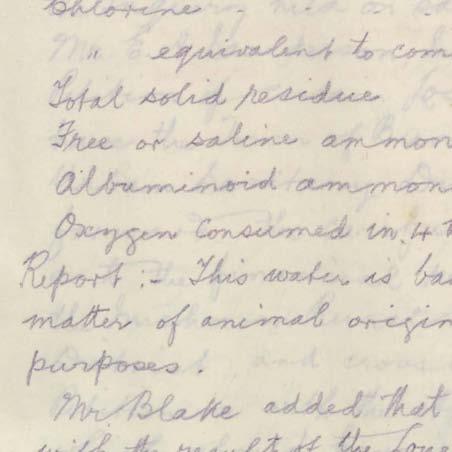 Chlorine
" equivalent to com
Total solid residue
Free or saline ammon
Albuminoid ammon
Oxygen consumed in 4
Report :- This water is ba
matter of animal origin
purposes.
Mr. Blake added that
with the result of the